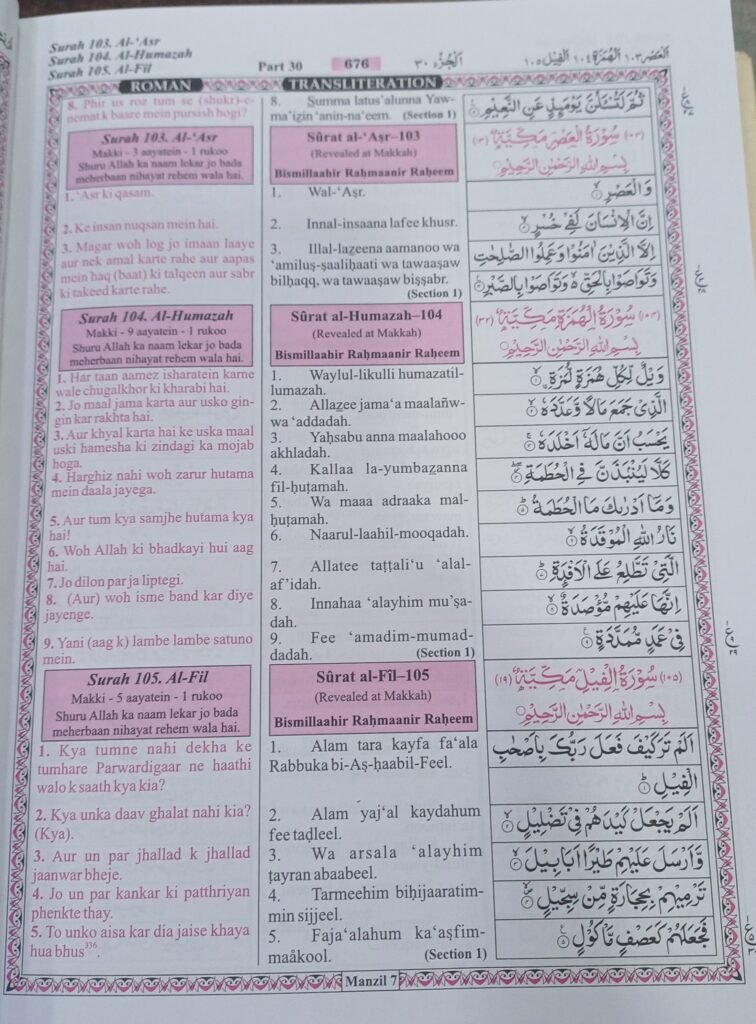 Surah 103. Al-‘Asr
Surah 104. Al-Humazah
Surah 105. Al-Fil
Part 30
676
اَلْجُزْء ٣٠
الْعَصْر ١٠٣ الْهُمَزَة ١٠٤ الْفِيْل ١٠٥
ROMAN
TRANSLITERATION
8. Phir us roz tum se (shukr)-e-
nemat k baare mein pursish hogi?
Surah 103. Al-‘Asr
Makki - 3 aayatein - 1 rukoo
Shuru Allah ka naam lekar jo bada
meherbaan nihayat rehem wala hai.
1. ‘Asr ki qasam.
2. Ke insan nuqsan mein hai.
3. Magar woh log jo imaan laaye
aur nek amal karte rahe aur aapas
mein haq (baat) ki talqeen aur sabr
ki takeed karte rahe.
Surah 104. Al-Humazah
Makki - 9 aayatein - 1 rukoo
Shuru Allah ka naam lekar jo bada
meherbaan nihayat rehem wala hai.
1. Har taan aamez isharatein karne
wale chugalkhor ki kharabi hai.
2. Jo maal jama karta aur usko gin-
gin kar rakhta hai.
3. Aur khyal karta hai ke uska maal
uski hamesha ki zindagi ka mojab
hoga.
4. Harghiz nahi woh zarur hutama
mein daala jayega.
5. Aur tum kya samjhe hutama kya
hai!
6. Woh Allah ki bhadkayi hui aag
hai.
7. Jo dilon par ja liptegi.
8. (Aur) woh isme band kar diye
jayenge.
9. Yani (aag k) lambe lambe satuno
mein.
Surah 105. Al-Fil
Makki - 5 aayatein - 1 rukoo
Shuru Allah ka naam lekar jo bada
meherbaan nihayat rehem wala hai.
1. Kya tumne nahi dekha ke
tumhare Parwardigaar ne haathi
walo k saath kya kia?
2. Kya unka daav ghalat nahi kia?
(Kya).
3. Aur un par jhallad k jhallad
jaanwar bheje.
4. Jo un par kankar ki patthriyan
phenkte thay.
5. To unko aisa kar dia jaise khaya
hua bhus³³⁶.
8. S̱umma latus’alunna Yaw-
ma’iẕin ‘anin-na‘eem. (Section 1)
Sûrat al-‘Aṣr–103
(Revealed at Makkah)
Bismillaahir Raḥmaanir Raḥeem
1. Wal-‘Aṣr.
2. Innal-insaana lafee khusr.
3. Illal-laẕeena aamanoo wa
‘amiluṣ-ṣaaliḥaati wa tawaaṣaw
bilḥaqq, wa tawaaṣaw biṣṣabr.
(Section 1)
Sûrat al-Humazah–104
(Revealed at Makkah)
Bismillaahir Raḥmaanir Raḥeem
1. Waylul-likulli humazatil-
lumazah.
2. Allaẕee jama‘a maalañw-
wa ‘addadah.
3. Yaḥsabu anna maalahooo
akhladah.
4. Kallaa la-yumbaẕanna
fil-ḥuṭamah.
5. Wa maaa adraaka mal-
ḥuṭamah.
6. Naarul-laahil-mooqadah.
7. Allatee taṭṭali‘u ‘alal-
af’idah.
8. Innahaa ‘alayhim mu’ṣa-
dah.
9. Fee ‘amadim-mumad-
dadah. (Section 1)
Sûrat al-Fîl–105
(Revealed at Makkah)
Bismillaahir Raḥmaanir Raḥeem
1. Alam tara kayfa fa‘ala
Rabbuka bi-Aṣ-ḥaabil-Feel.
2. Alam yaj‘al kaydahum
fee taḍleel.
3. Wa arsala ‘alayhim
ṭayran abaabeel.
4. Tarmeehim biḥijaaratim-
min sijjeel.
5. Faja‘alahum ka‘aṣfim-
maåkool. (Section 1)
ثُمَّ لَتُسْـَٔلُنَّ يَوْمَىِٕذٍ عَنِ النَّعِيْمِ ۝٨
(١٠٣) سُوْرَةُ الْعَصْرِ مَكِّيَّةٌ (١٣)
بِسْمِ اللهِ الرَّحْمٰنِ الرَّحِيْمِ
وَالْعَصْرِ ۝١
اِنَّ الْاِنْسَانَ لَفِيْ خُسْرٍ ۝٢
اِلَّا الَّذِيْنَ اٰمَنُوْا وَعَمِلُوا الصّٰلِحٰتِ
وَتَوَاصَوْا بِالْحَقِّ ۙ وَتَوَاصَوْا بِالصَّبْرِ ۝٣
(١٠٤) سُوْرَةُ الْهُمَزَةِ مَكِّيَّةٌ (٣٢)
بِسْمِ اللهِ الرَّحْمٰنِ الرَّحِيْمِ
وَيْلٌ لِّكُلِّ هُمَزَةٍ لُّمَزَةِ ۝١
الَّذِيْ جَمَعَ مَالًا وَّعَدَّدَهٗ ۝٢
يَحْسَبُ اَنَّ مَالَهٗٓ اَخْلَدَهٗ ۝٣
كَلَّا لَيُنْۢبَذَنَّ فِي الْحُطَمَةِ ۝٤
وَمَآ اَدْرٰىكَ مَا الْحُطَمَةُ ۝٥
نَارُ اللهِ الْمُوْقَدَةُ ۝٦
الَّتِيْ تَطَّلِعُ عَلَى الْاَفْـِٕدَةِ ۝٧
اِنَّهَا عَلَيْهِمْ مُّؤْصَدَةٌ ۝٨
فِيْ عَمَدٍ مُّمَدَّدَةٍ ۝٩
(١٠٥) سُوْرَةُ الْفِيْلِ مَكِّيَّةٌ (١٩)
بِسْمِ اللهِ الرَّحْمٰنِ الرَّحِيْمِ
اَلَمْ تَرَ كَيْفَ فَعَلَ رَبُّكَ بِاَصْحٰبِ
الْفِيْلِ ۝١
اَلَمْ يَجْعَلْ كَيْدَهُمْ فِيْ تَضْلِيْلٍ ۝٢
وَّاَرْسَلَ عَلَيْهِمْ طَيْرًا اَبَابِيْلَ ۝٣
تَرْمِيْهِمْ بِحِجَارَةٍ مِّنْ سِجِّيْلٍ ۝٤
فَجَعَلَهُمْ كَعَصْفٍ مَّاْكُوْلٍ ۝٥
Manzil 7